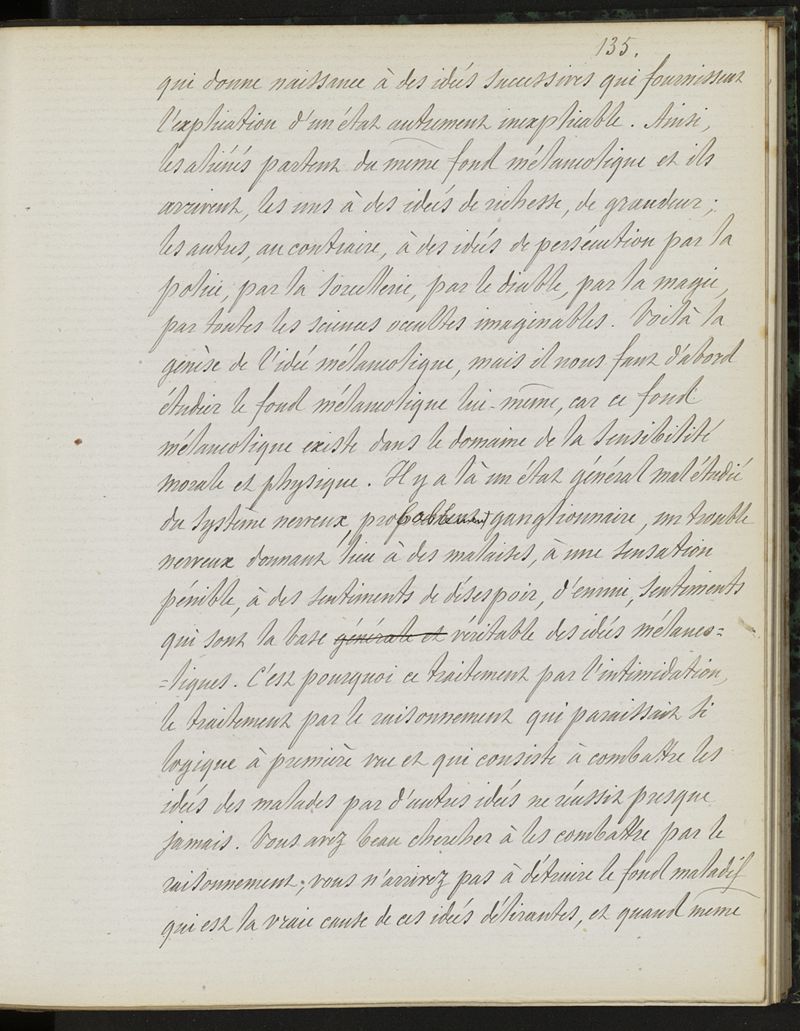 135.
qui donne naissance à des idées successives qui fournissent
l'explication d'un état autrement inexplicable. Ainsi,
les aliénés partent du même fond mélancolique et ils
arrivent, les uns à des idées de richesse, de grandeur ;
les autres, au contraire, à des idées de persécution par la
police, par la sorcellerie, par le diable, par la magie,
par toutes les sciences occultes imaginables. Voilà la
genèse de l'idée mélancolique, mais il nous faut d'abord
étudier le fond mélancolique lui-même, car ce fond
mélancolique existe dans le domaine de la sensibilité
morale et physique. Il y a là un état général mal étudié
du système nerveux, probablement ganglionnaire, un trouble
nerveux donnant lieu à des malaises, à une sensation
pénible, à des sentiments de désespoir, d'ennui, sentiments
qui sont la base générale et véritable des idées mélanco=
=liques. C'est pourquoi ce traitement par l'intimidation,
le traitement par le raisonnement qui paraissait si
logique à première vue et qui consiste à combattre les
idées des malades par d'autres idées ne réussit presque
jamais. Vous avez beau chercher à les combattre par le
raisonnement ; vous n'arrivez pas à détruire le fond maladif
qui est la vraie cause de ces idées délirantes, et quand même